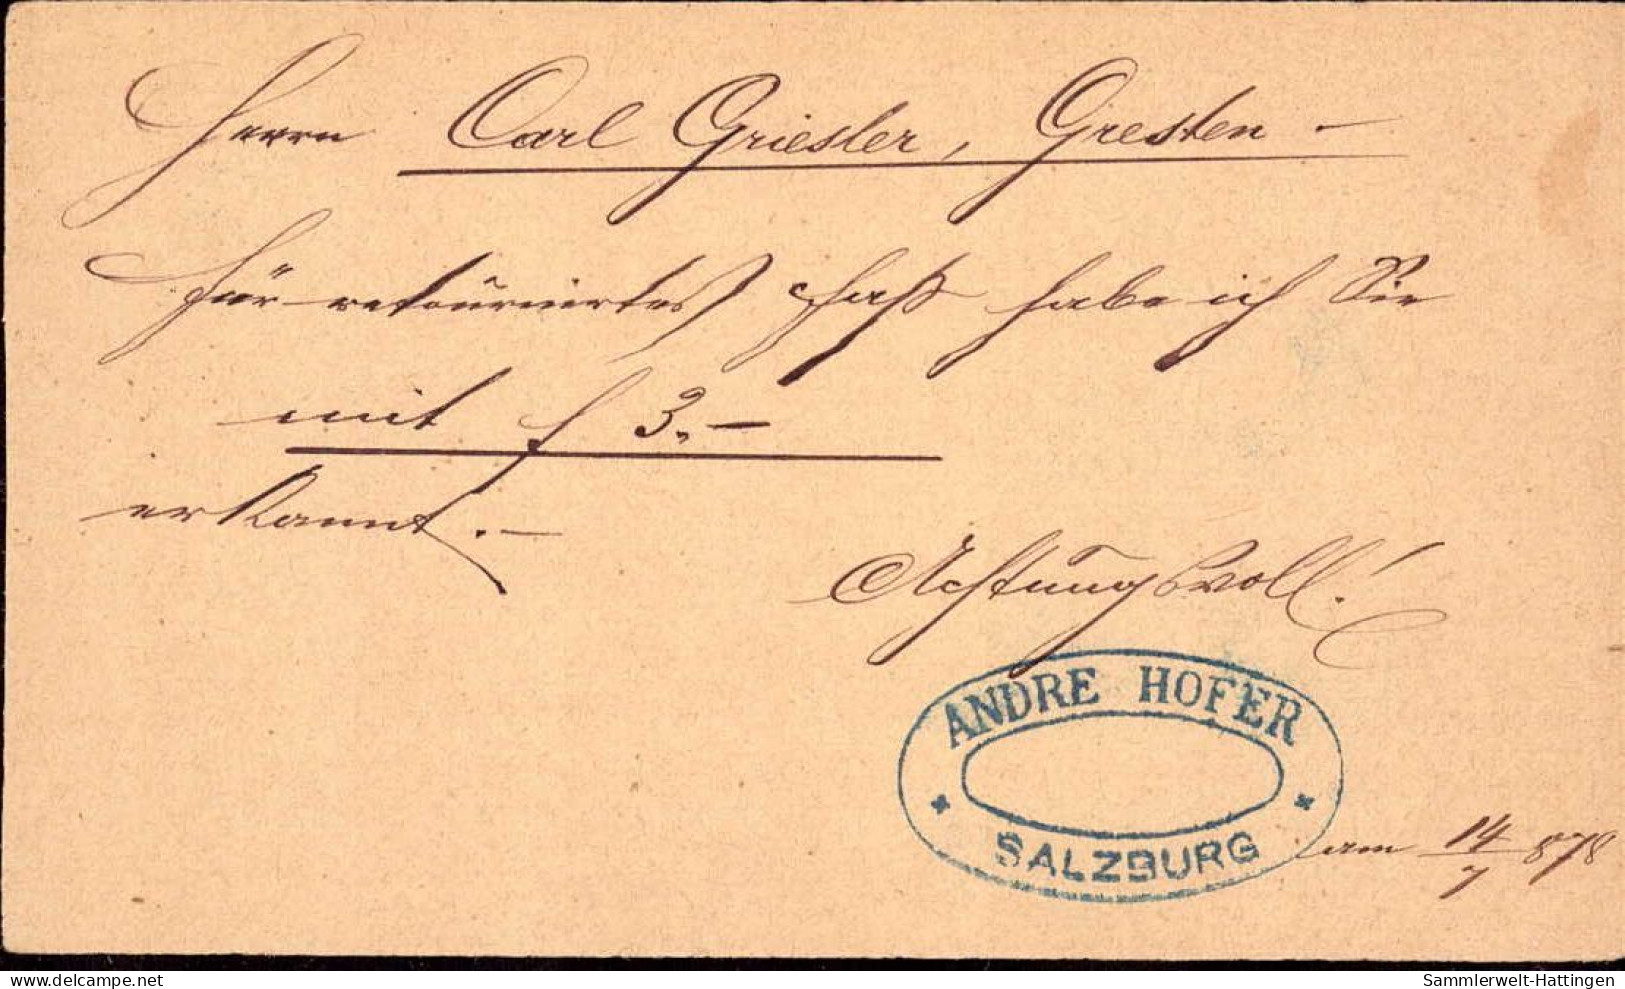 Herrn Carl Griesler, Gresten –
Für retournirtes Faß habe ich Sie
mit f 3.–
erkannt. –
Achtungsvoll!
ANDRE HOFER
SALZBURG
am 14/7 878
delcampe.net
Sammlerwelt-Hattingen